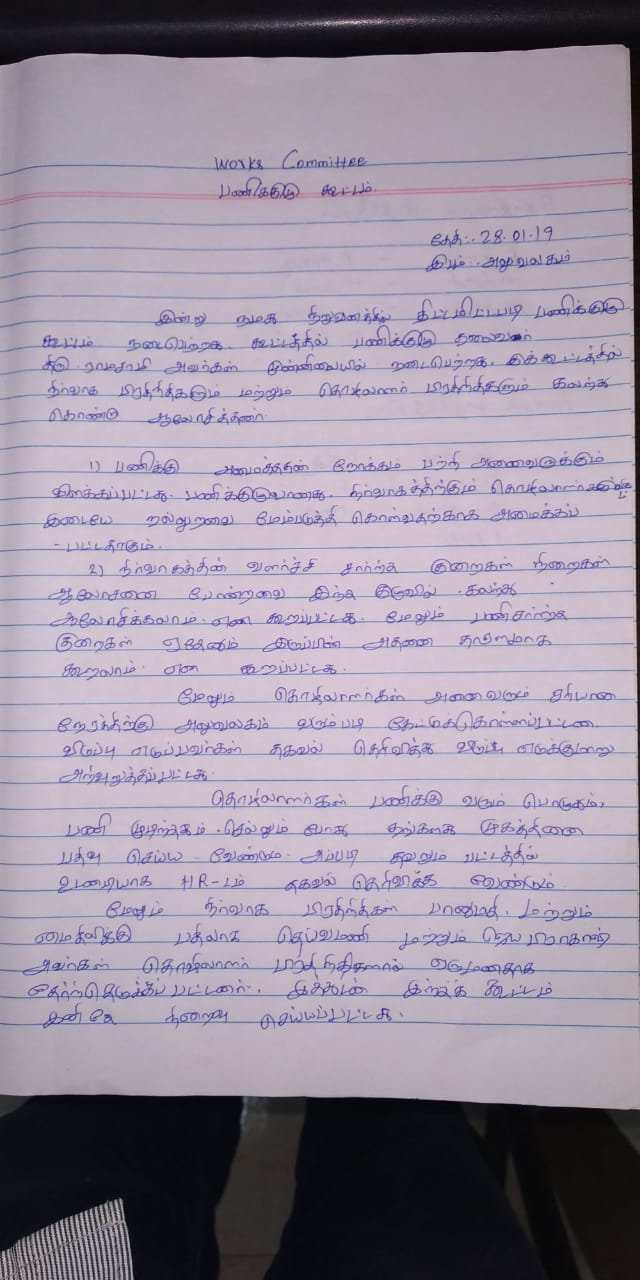 Works Committee
பணிக்குழு கூட்டம்.
தேதி:. 28.01.19
இடம் : அலுவலகம்
இன்று நமது நிறுவனத்தில் திட்டமிட்டபடி பணிக்குழு
கூட்டம் நடைபெற்றது. கூட்டத்தில் பணிக்குழு தலைவர்
திரு அவர்கள் முன்னிலையில் நடைபெற்றது. இக்கூட்டத்தில்
நிர்வாக பிரதிநிதிகளும் மற்றும் தொழிலாளர் பிரதிநிதிகளும் கலந்து
கொண்டு ஆலோசித்தனர்.
1) பணிக்குழு அமைத்ததன் நோக்கம் பற்றி அனைவருக்கும்
விளக்கப்பட்டது. பணிக்குழுவானது, நிர்வாகத்திற்கும்
இடையே நல்லுறவை மேம்படுத்தி கொள்வதற்காக அமைக்கப்
- பட்டதாகும்.
2) நிர்வாகத்தின் வளர்ச்சி சார்ந்த குறைகள் நிறைகள்
ஆலோசனை போன்றவை இந்த குழுவில் கலந்து
ஆலோசிக்கலாம். என கூறப்பட்டது. மேலும் பணிசார்ந்த
குறைகள் ஏதேனும் இருப்பின் அதனை தாராளமாக
கூறலாம். என கூறப்பட்டது.
மேலும் தொழிலாளர்கள் அனைவரும் சரியான
நேரத்திற்கு அலுவலகம் வரும்படி கேட்டுக்கொள்ளப்பட்டன.
விடுப்பு எடுப்பவர்கள் தகவல் தெரிவித்து விடுப்பு எடுக்குமாறு
அறிவுறுத்தப்பட்டது.
தொழிலாளர்கள் பணிக்கு வரும் பொழுதும்,
பணி முடிந்ததும் செல்லும் போது தங்களது முகத்தினை
பதிவு செய்ய - வேண்டும். அப்படி தவறும் பட்டத்தில்
உடனடியாக HR-டம் தகவல் தெரிவிக்க வேண்டும்.
மேலும் நிர்வாக பிரதிநிதிகள் பானுமதி, மற்றும்
பதிலாக தெய்வமணி மற்றும்
அவர்கள் தொழிலாளர் பிரதிநிதிகளால் ஒருமனதாக
தேர்ந்தெடுக்கப் பட்டனர். இத்துடன் இந்தக் கூட்டம்
இனிதே நிறைவு செய்யப்பட்டது.